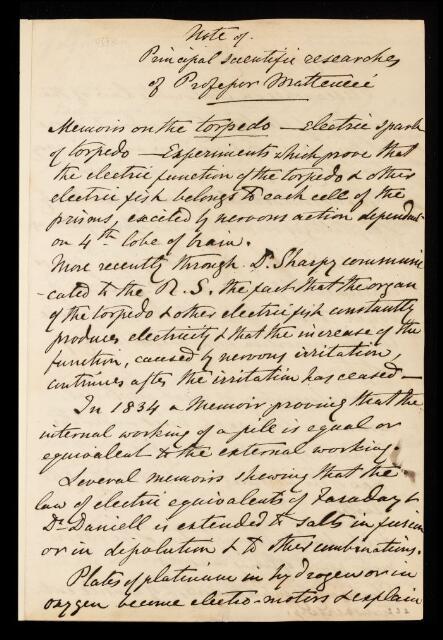 Note of.
Principal scientific researches
of Professor Matteucci
Memoirs on the torpedo — Electric spark
of torpedo — Experiments which prove that
the electric function of the torpedo & other
electric fish belongs to each cell of the
prisms, excited by nervous action dependant
on 4th lobe of brain.
More recently through Dr. Sharpy communi
-cated to the R. S. the fact that the organ
of the torpedo & other electric fish constantly
produces electricity & that the increase of the
function, caused by nervous irritation,
continues after the irritation has ceased —
In 1834 a Memoir proving that the
internal working of a pile is equal or
equivalent to the external working.
Several memoirs shewing that the
law of electric equivalents of Faraday &
Dr. Daniell is extended to salts in fusion
or in dissolution & to other combinations.
Plates of platinum in hydrogen or in
oxygen become electro-motors & explain